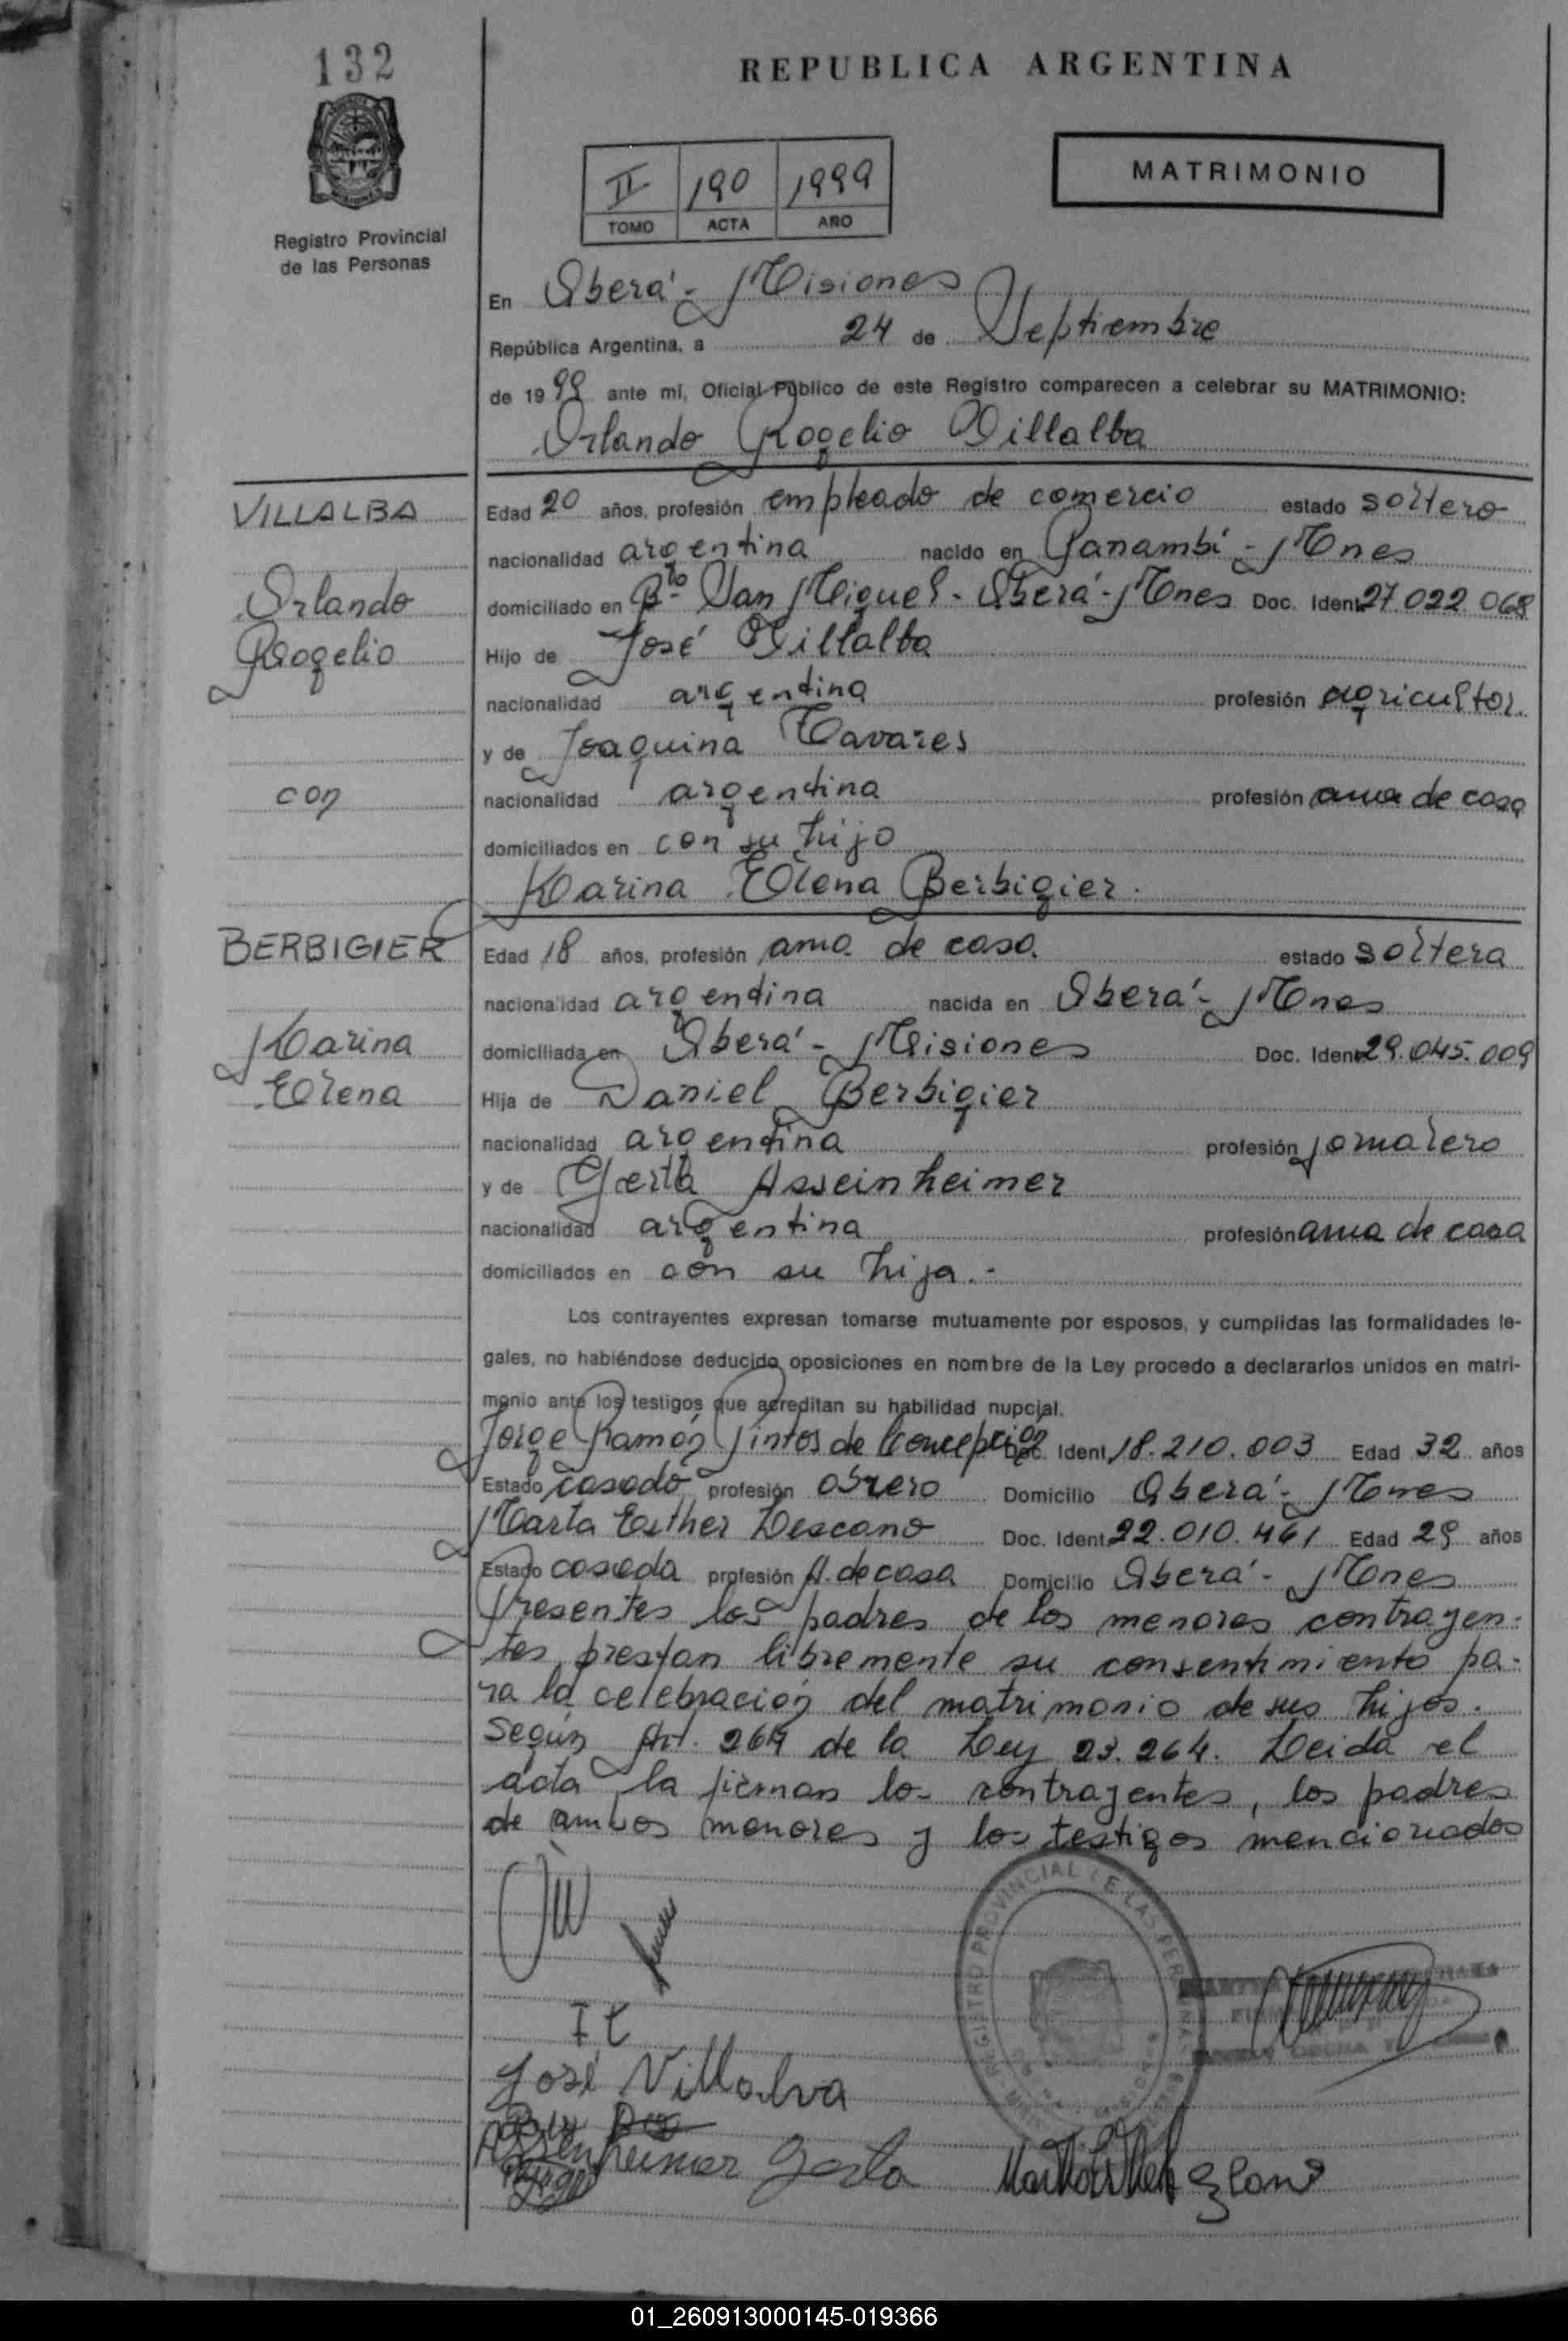 132
REPUBLICA ARGENTINA
II 190 1999
TOMO ACTA AÑO
MATRIMONIO
Registro Provincial
de las Personas
En Oberá - Misiones
República Argentina, a 24 de Septiembre
de 1999 ante mi, Oficial Público de este Registro comparecen a celebrar su MATRIMONIO:
Orlando Rogelio Villalba
VILLALBA
Orlando
Rogelio
con
BERBIGIER
Karina
Elena
Edad 20 años, profesión empleado de comercio estado soltero
nacionalidad argentina nacido en Panambí - Mnes
domiciliado en Bº San Miguel - Oberá - Mnes Doc. Ident. 27.022.068
Hijo de José Villalba
nacionalidad argentina profesión agricultor.
y de Joaquina Tavares
nacionalidad argentina profesión ama de casa
domiciliados en con su hijo
Karina Elena Berbigier.
Edad 18 años, profesión ama de casa. estado soltera
nacionalidad argentina nacida en Oberá - Mnes
domiciliada en Oberá - Misiones Doc. Ident. 29.045.009
Hija de Daniel Berbigier
nacionalidad argentina profesión jornalero
y de Gerta Asseinheimer
nacionalidad argentina profesión ama de casa
domiciliados en con su hija.-
Los contrayentes expresan tomarse mutuamente por esposos, y cumplidas las formalidades le-
gales, no habiéndose deducido oposiciones en nombre de la Ley procedo a declararlos unidos en matri-
monio ante los testigos que acreditan su habilidad nupcial.
Jorge Ramón Pintos de Concepción Doc. Ident. 18.210.003 Edad 32 años
Estado casado profesión obrero Domicilio Oberá - Mnes
Marta Esther Lescano Doc. Ident. 22.010.461 Edad 29 años
Estado casada profesión A. de casa Domicilio Oberá - Mnes
Presentes los padres de los menores contrayen-
tes prestan libremente su consentimiento pa-
ra la celebración del matrimonio de sus hijos.
Según Art. 264 de la Ley 23.264. Leida el
acta la firman los contrayentes, los padres
de ambos menores y los testigos mencionados
REGISTRO PROVINCIAL DE LAS PERSONAS
José Villalva
Assenheimer Gerta
01_260913000145-019366